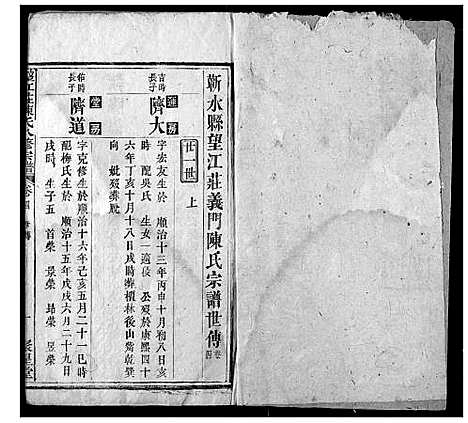 蘄水縣望江莊義門陳氏宗譜世傳 卷四
廿一世 上
吉時長子
濟大
字宏友生於 順治十三年丙申十月初八日亥
時 配吳氏 生女一適倪 公歿於康熙四十
六年丁亥十月十八日戌時葬橫林後山癸乾巽
向 妣歿葬厭
佑時長子
堂房
濟道
字克修生於 順治十六年己亥五月二十一巳時
配梅氏生於 順治十五年戊戌六月二十九日
戌時 生子五 首榮 景榮 昻榮 昱榮
望江莊陳氏八修宗譜